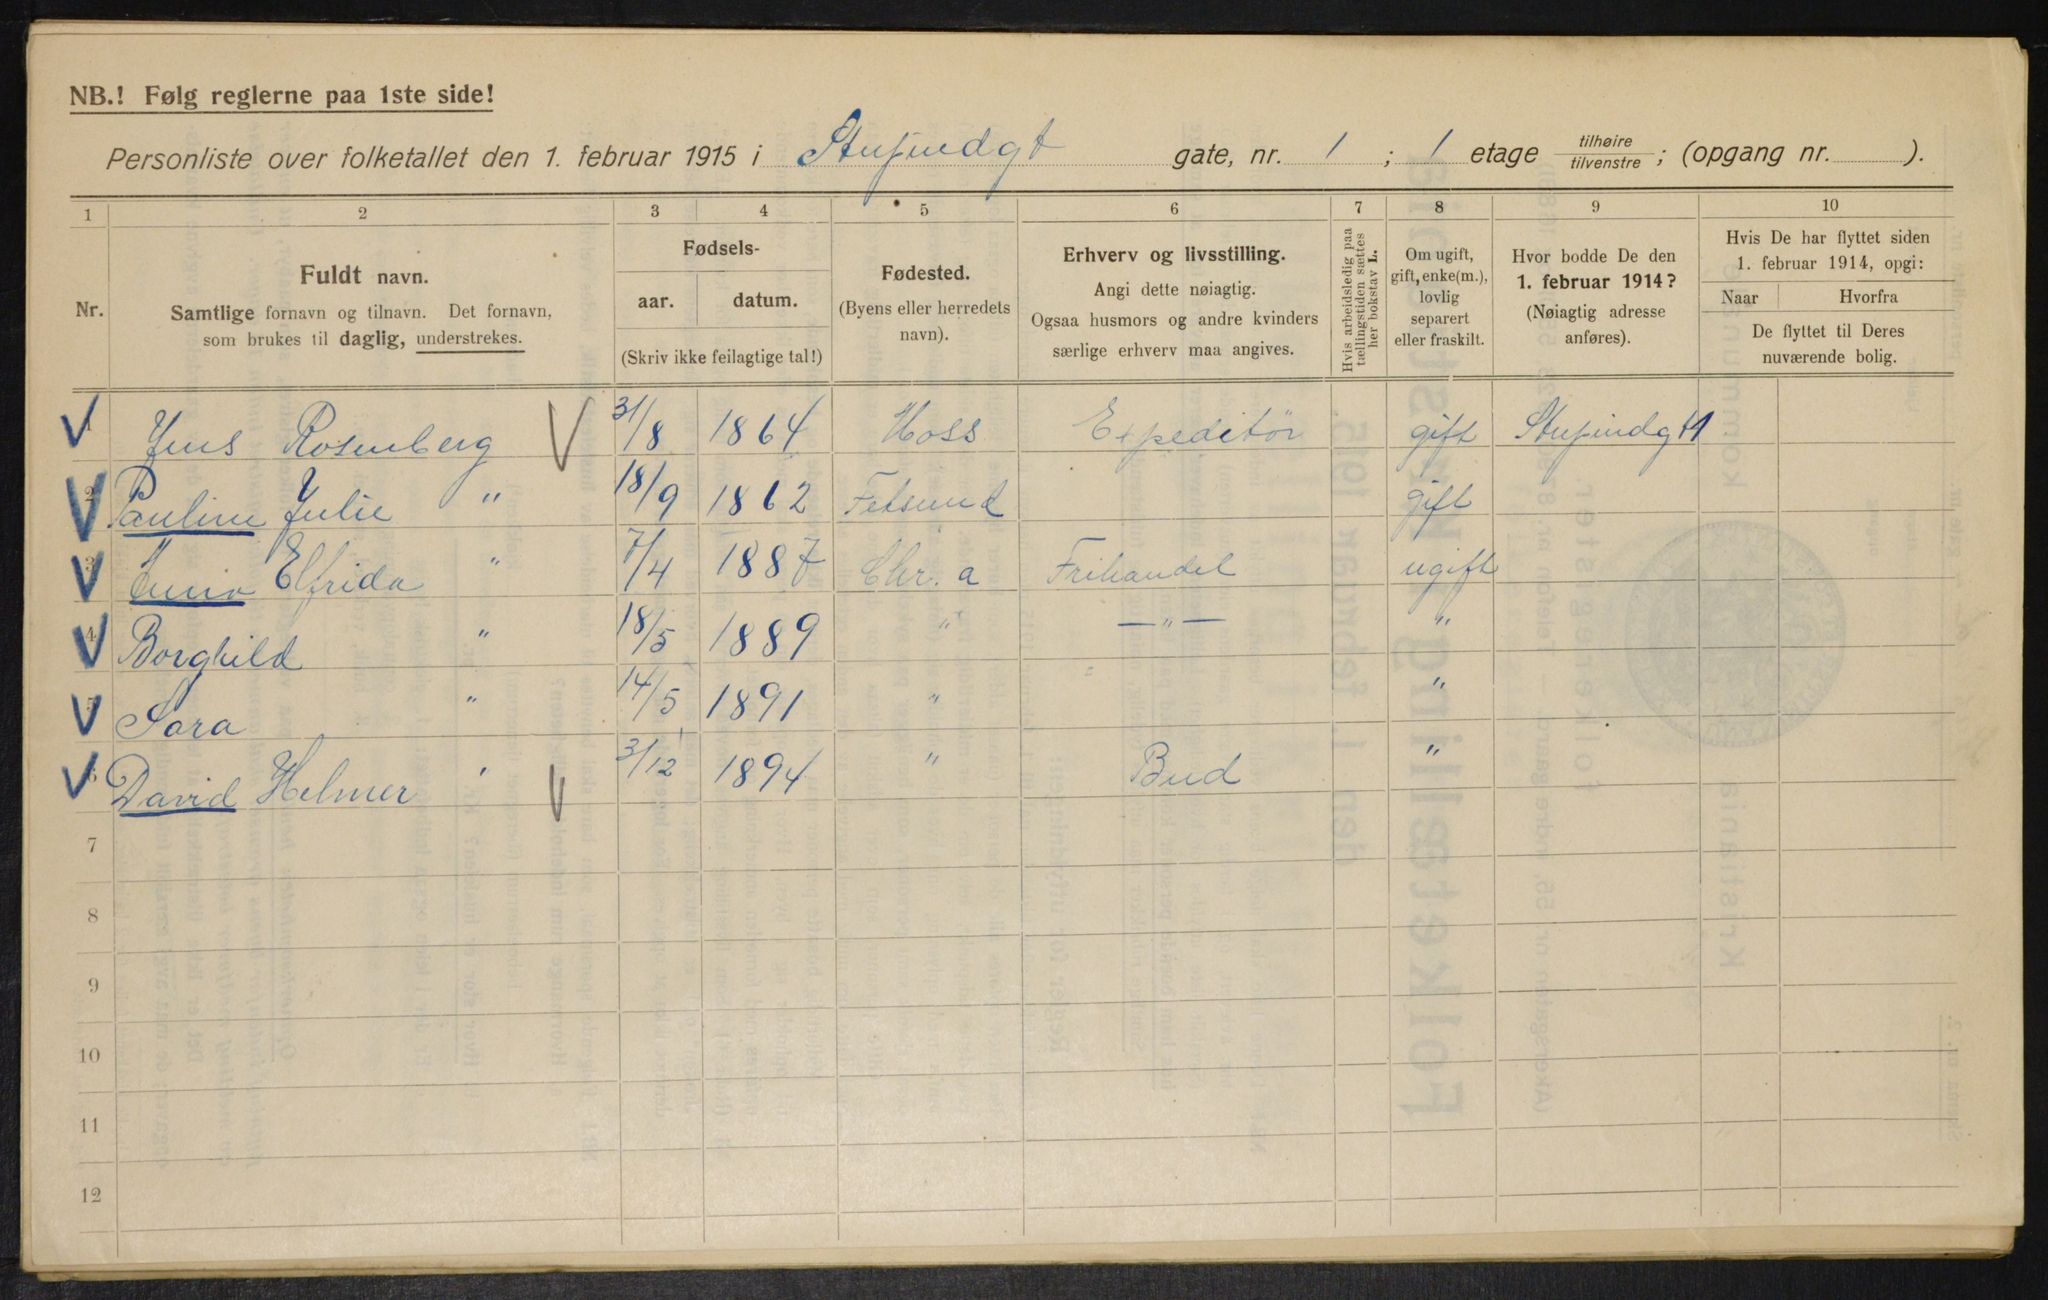 NB.! Følg reglerne paa 1ste side!
Personliste over folketallet den 1. februar 1915 i Stupindgt gate, nr. 1 ; 1 etage tilhøire tilvenstre ; (opgang nr. ).
1 2 3 4 5 6 7 8 9 10
Nr.
Fuldt navn.
Samtlige fornavn og tilnavn. Det fornavn,
som brukes til daglig, understrekes.
Fødsels-
aar. datum.
(Skriv ikke feilagtige tal!)
Fødested.
(Byens eller herredets
navn).
Erhverv og livsstilling.
Angi dette nøiagtig.
Ogsaa husmors og andre kvinders
særlige erhverv maa angives.
Hvis arbeidsledig paa
tællingstiden sættes
her bokstav L.
Om ugift,
gift, enke(m.),
lovlig
separert
eller fraskilt.
Hvor bodde De den
1. februar 1914?
(Nøiagtig adresse
anføres).
Hvis De har flyttet siden
1. februar 1914, opgi:
Naar Hvorfra
De flyttet til Deres
nuværende bolig.
1 Jens Rosenberg 31/8 1864 Moss Expeditør gift Stupindgt 1
2 Pauline Julie " 18/9 1862 Fetsund gift
3 Elfrida " 7/4 1887 Chr.a Frihandel ugift
4 Borghild " 18/5 1889 " — " — "
5 Sara " 14/5 1891 " " "
6 David Helmer " 3/12 1894 " Bud "
7
8
9
10
11
12